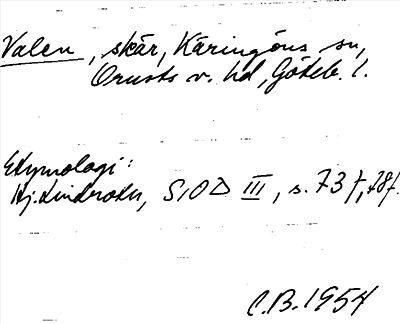 Valen, skär, Käringöns sn,
Orusts v. hd, Göteb. l.
Etymologi:
Hj. Lindroth, SIOD III, s. 73 f, 78 f.
C.B. 1954